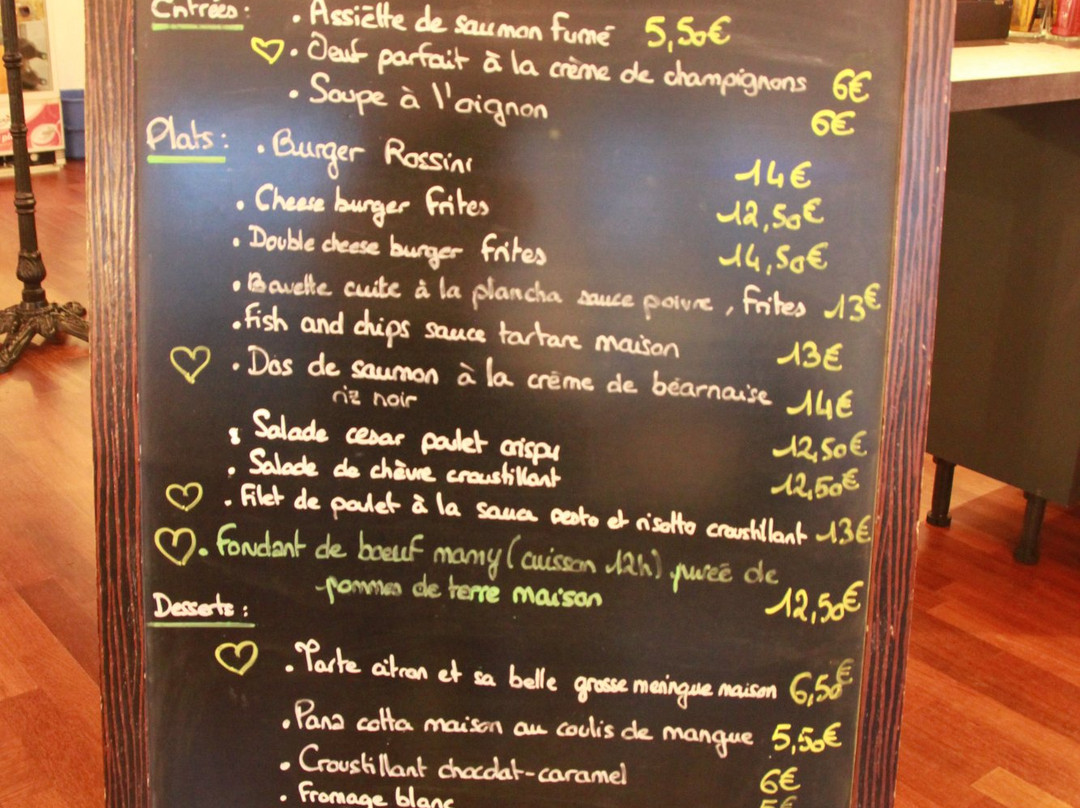 Entrées : • Assiette de saumon fumé 5,50€
• Oeuf parfait à la crème de champignons 6€
• Soupe à l'oignon 6€
Plats : • Burger Rossini 14€
• Cheese burger frites 12,50€
• Double cheese burger frites 14,50€
• Bavette cuite à la plancha sauce poivre, frites 13€
• Fish and chips sauce tartare maison 13€
• Dos de saumon à la crème de béarnaise 14€
riz noir
• Salade cesar poulet crispy 12,50€
• Salade de chèvre croustillant 12,50€
• Filet de poulet à la sauce pesto et risotto croustillant 13€
• Fondant de boeuf mamy (cuisson 12h) purée de
pommes de terre maison 12,50€
Desserts :
• Tarte citron et sa belle grosse meringue maison 6,50€
• Pana cotta maison au coulis de mangue 5,50€
• Croustillant chocolat-caramel 6€
• Fromage blanc 5€